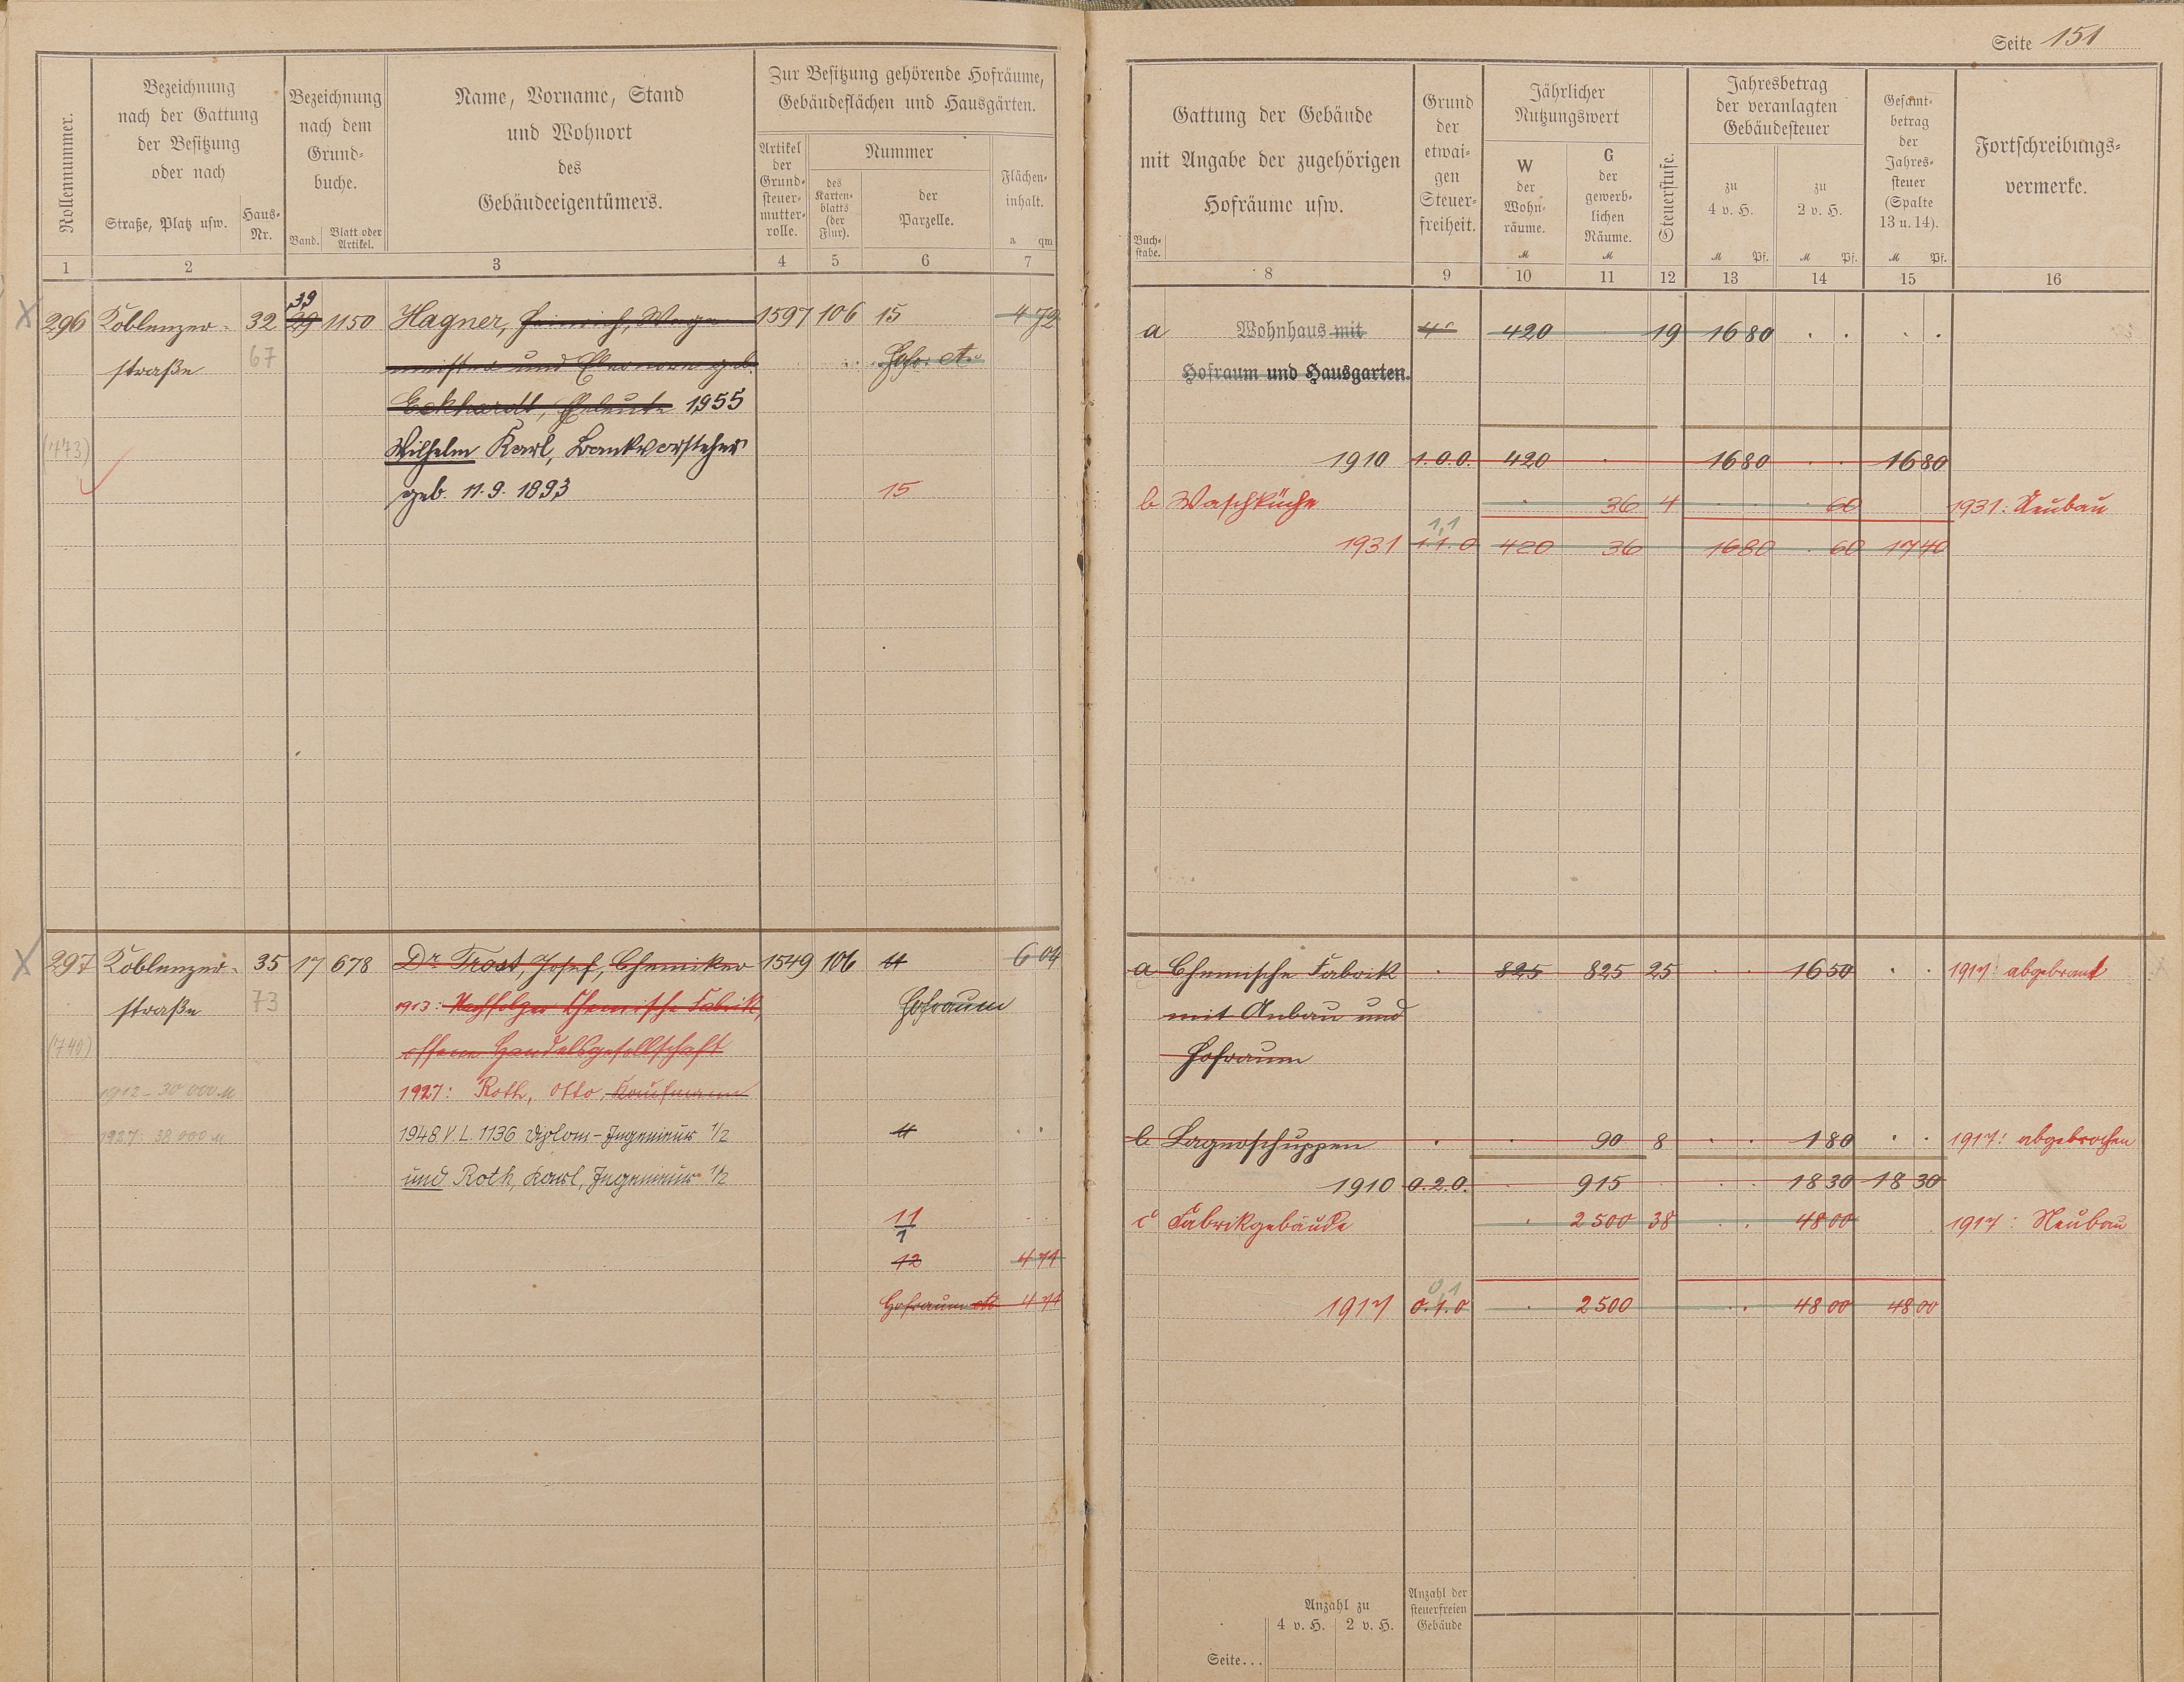 Seite 151
Rollennummer.
Bezeichnung
nach der Gattung
der Besitzung
oder nach
Straße, Platz usw.
Haus-
Nr.
Bezeichnung
nach dem
Grund-
buche.
Band.
Blatt oder
Artikel.
Name, Vorname, Stand
und Wohnort
des
Gebäudeeigentümers.
Zur Besitzung gehörende Hofräume,
Gebäudeflächen und Hausgärten.
Artikel
der
Grund-
steuer-
mutter-
rolle.
Nummer
des
Karten-
blatts
(der
Flur).
der
Parzelle.
Flächen-
inhalt.
a qm
1 2 3 4 5 6 7
Gattung der Gebäude
mit Angabe der zugehörigen
Hofräume usw.
Buch-
stabe.
Grund
der
etwai-
gen
Steuer-
freiheit.
Jährlicher
Nutzungswert
W
der
Wohn-
räume.
M
G
der
gewerb-
lichen
Räume.
M
Steuerstufe.
Jahresbetrag
der veranlagten
Gebäudesteuer
zu
4 v. H.
M Pf.
zu
2 v. H.
M Pf.
Gesamt-
betrag
der
Jahres-
steuer
(Spalte
13 u. 14).
M Pf.
Fortschreibungs-
vermerke.
8 9 10 11 12 13 14 15 16
39
296 Koblenzer- 32 29 1150 Hagner, Heinrich, Wage- 1597 106 15 4 72
straße 67 meister und Eleonore geb.
Eckhardt, Eheleute 1955
(773) Wilhelm Karl, Bankvorsteher
geb. 11.9.1893 15
a Wohnhaus mit 420 19 16 80
Hofraum und Hausgarten.
1910 1.0.0. 420 16 80 16 80
b Waschküche 36 4 60 1931: Neubau
1,1
1931 1.1.0 420 36 16 80 60 17 40
297 Koblenzer- 35 17 678 Dr. Trost, Josef, Chemiker 1549 106 11 6 04
straße 73 1913: Nachfolger Chemische Fabrik, Hofraum
(740) offene Handelsgesellschaft
1912 - 30 000 M 1927: Roth, Otto, Kaufmann
1927: 38 000 M 1948 V.L. 1136 Diplom-Ingenieur 1/2 11
und Roth, Karl, Ingenieur 1/2
11
1
12 4 71
Hofraum 4 71
a Chemische Fabrik 825 825 25 16 50 1917: abgebrannt
mit Anbau und
Hofraum
b Lagerschuppen 90 8 1 80 1917: abgebrochen
1910 0.2.0. 915 18 30 18 30
c Fabrikgebäude 2500 38 48 00 1917: Neubau
0,1
1917 0.1.0 2500 48 00 48 00
Anzahl zu
4 v. H. 2 v. H.
Anzahl der
steuerfreien
Gebäude
Seite...